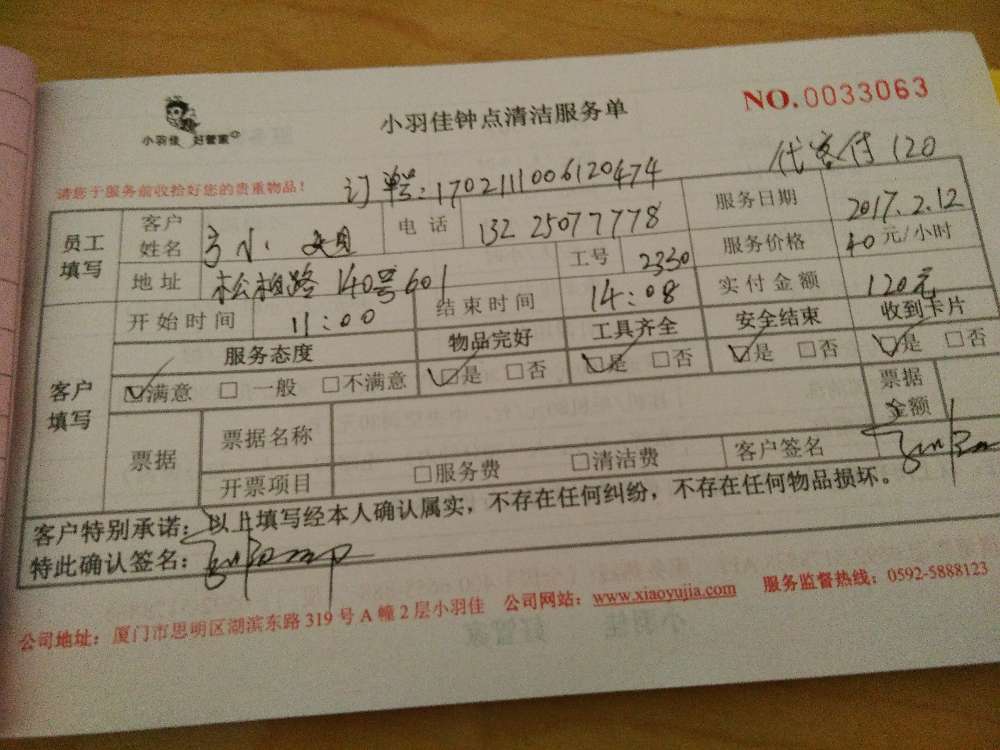 小羽佳 好管家
小羽佳钟点清洁服务单
NO.0033063
请您于服务前收拾好您的贵重物品！
订单号:1702111006120474
代客付120
员工填写 客户姓名 电话 13225077778 服务日期 2017.2.12
地址 松柏路140号601 工号 2330 服务价格 40元/小时
开始时间 11:00 结束时间 14:08 实付金额 120元
客户填写 服务态度 物品完好 工具齐全 安全结束 收到卡片
☑满意 □一般 □不满意 ☑是 □否 ☑是 □否 ☑是 □否 ☑是 □否
票据 票据名称 票据金额
开票项目 □服务费 □清洁费 客户签名
客户特别承诺：以上填写经本人确认属实，不存在任何纠纷，不存在任何物品损坏。
特此确认签名：
公司地址：厦门市思明区湖滨东路319号A幢2层小羽佳 公司网站：www.xiaoyujia.com 服务监督热线：0592-5888123